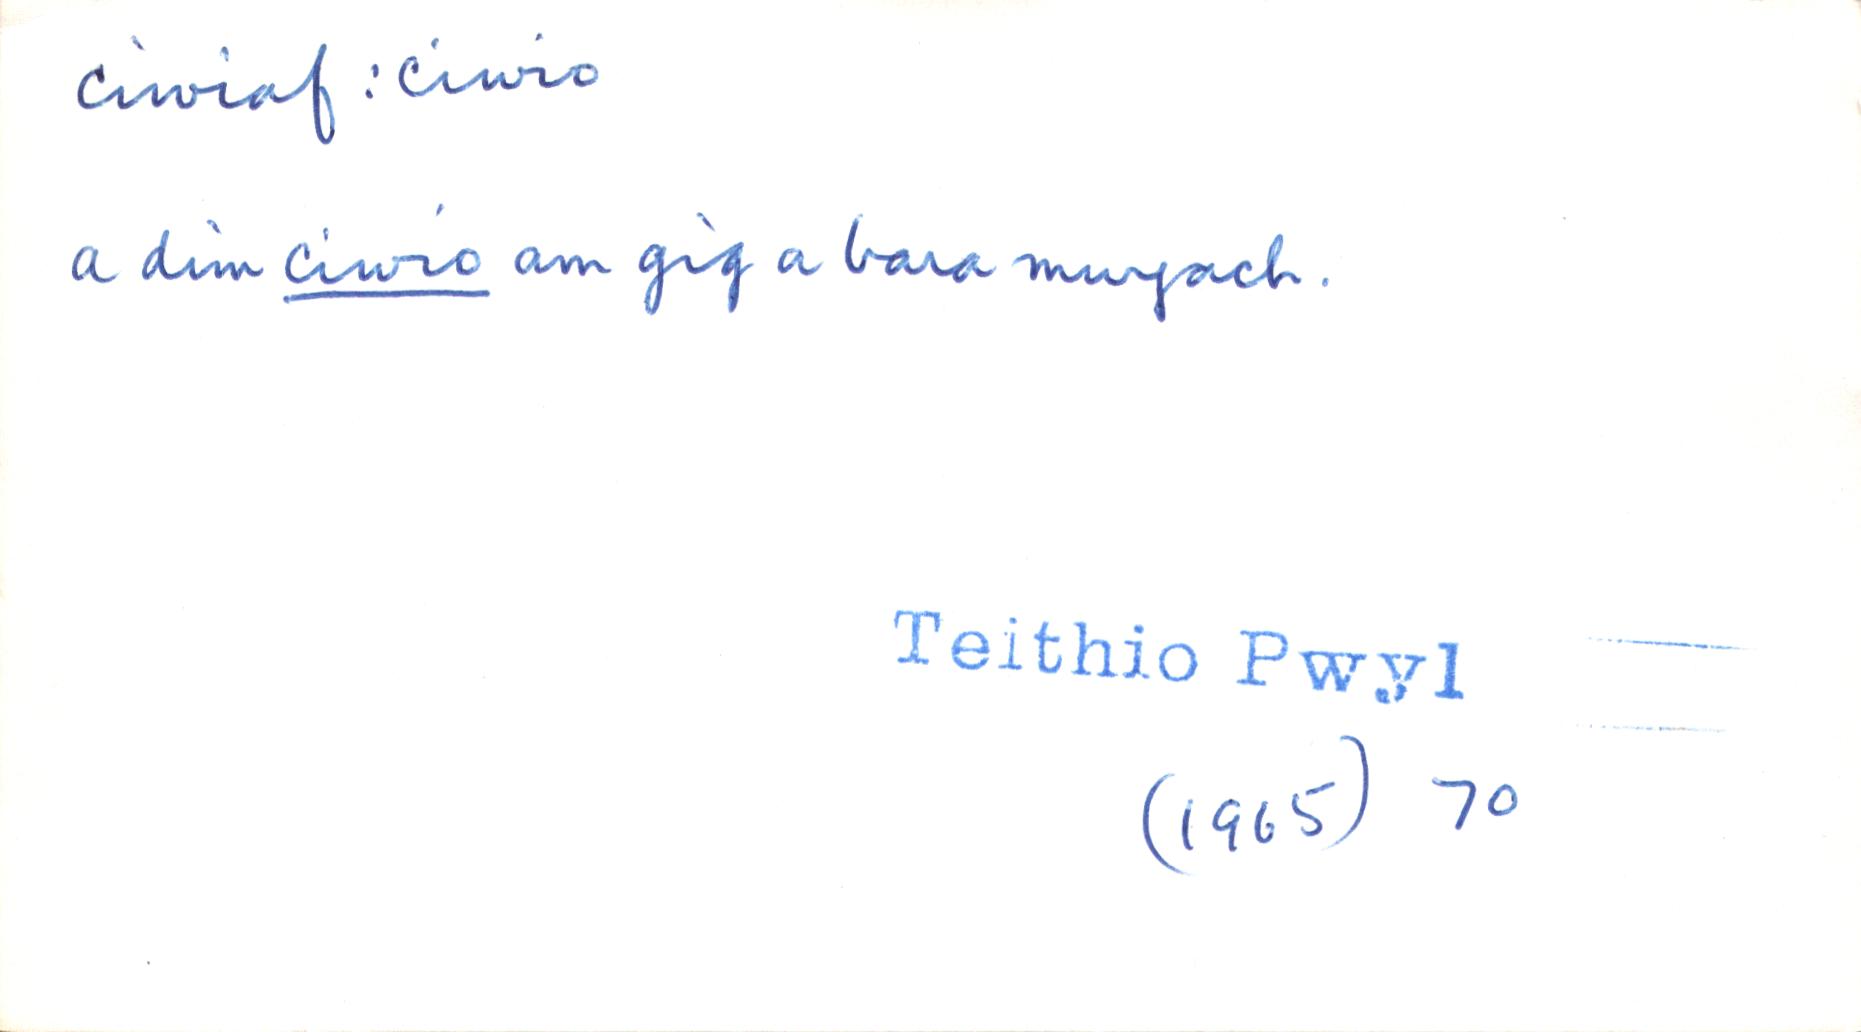 ciwiaf : ciwio
a dim ciwio am gig a bara mwyach.
Teithio Pwyl
(1965) 70